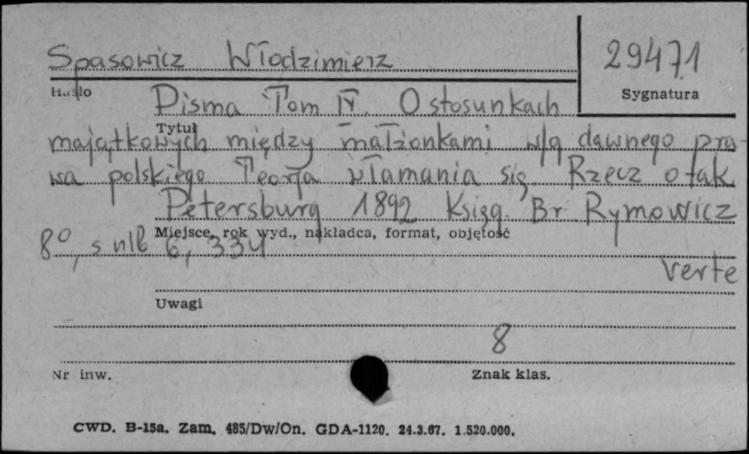 Spasowicz Włodzimierz
29471
Hasło
Sygnatura
Pisma Tom IV. O stosunkach
Tytuł
majątkowych między małżonkami w/g dawnego pra-
wa polskiego Teorja włamania się Rzecz o tak
Petersburg 1892 Księg. Br Rymowicz
Miejsce, rok wyd., nakładca, format, objętość
8°, s nlb 6, 334
verte
Uwagi
8
Nr inw.
Znak klas.
CWD. B-15a. Zam. 485/Dw/On. GDA-1120. 24.3.67. 1.520.000.